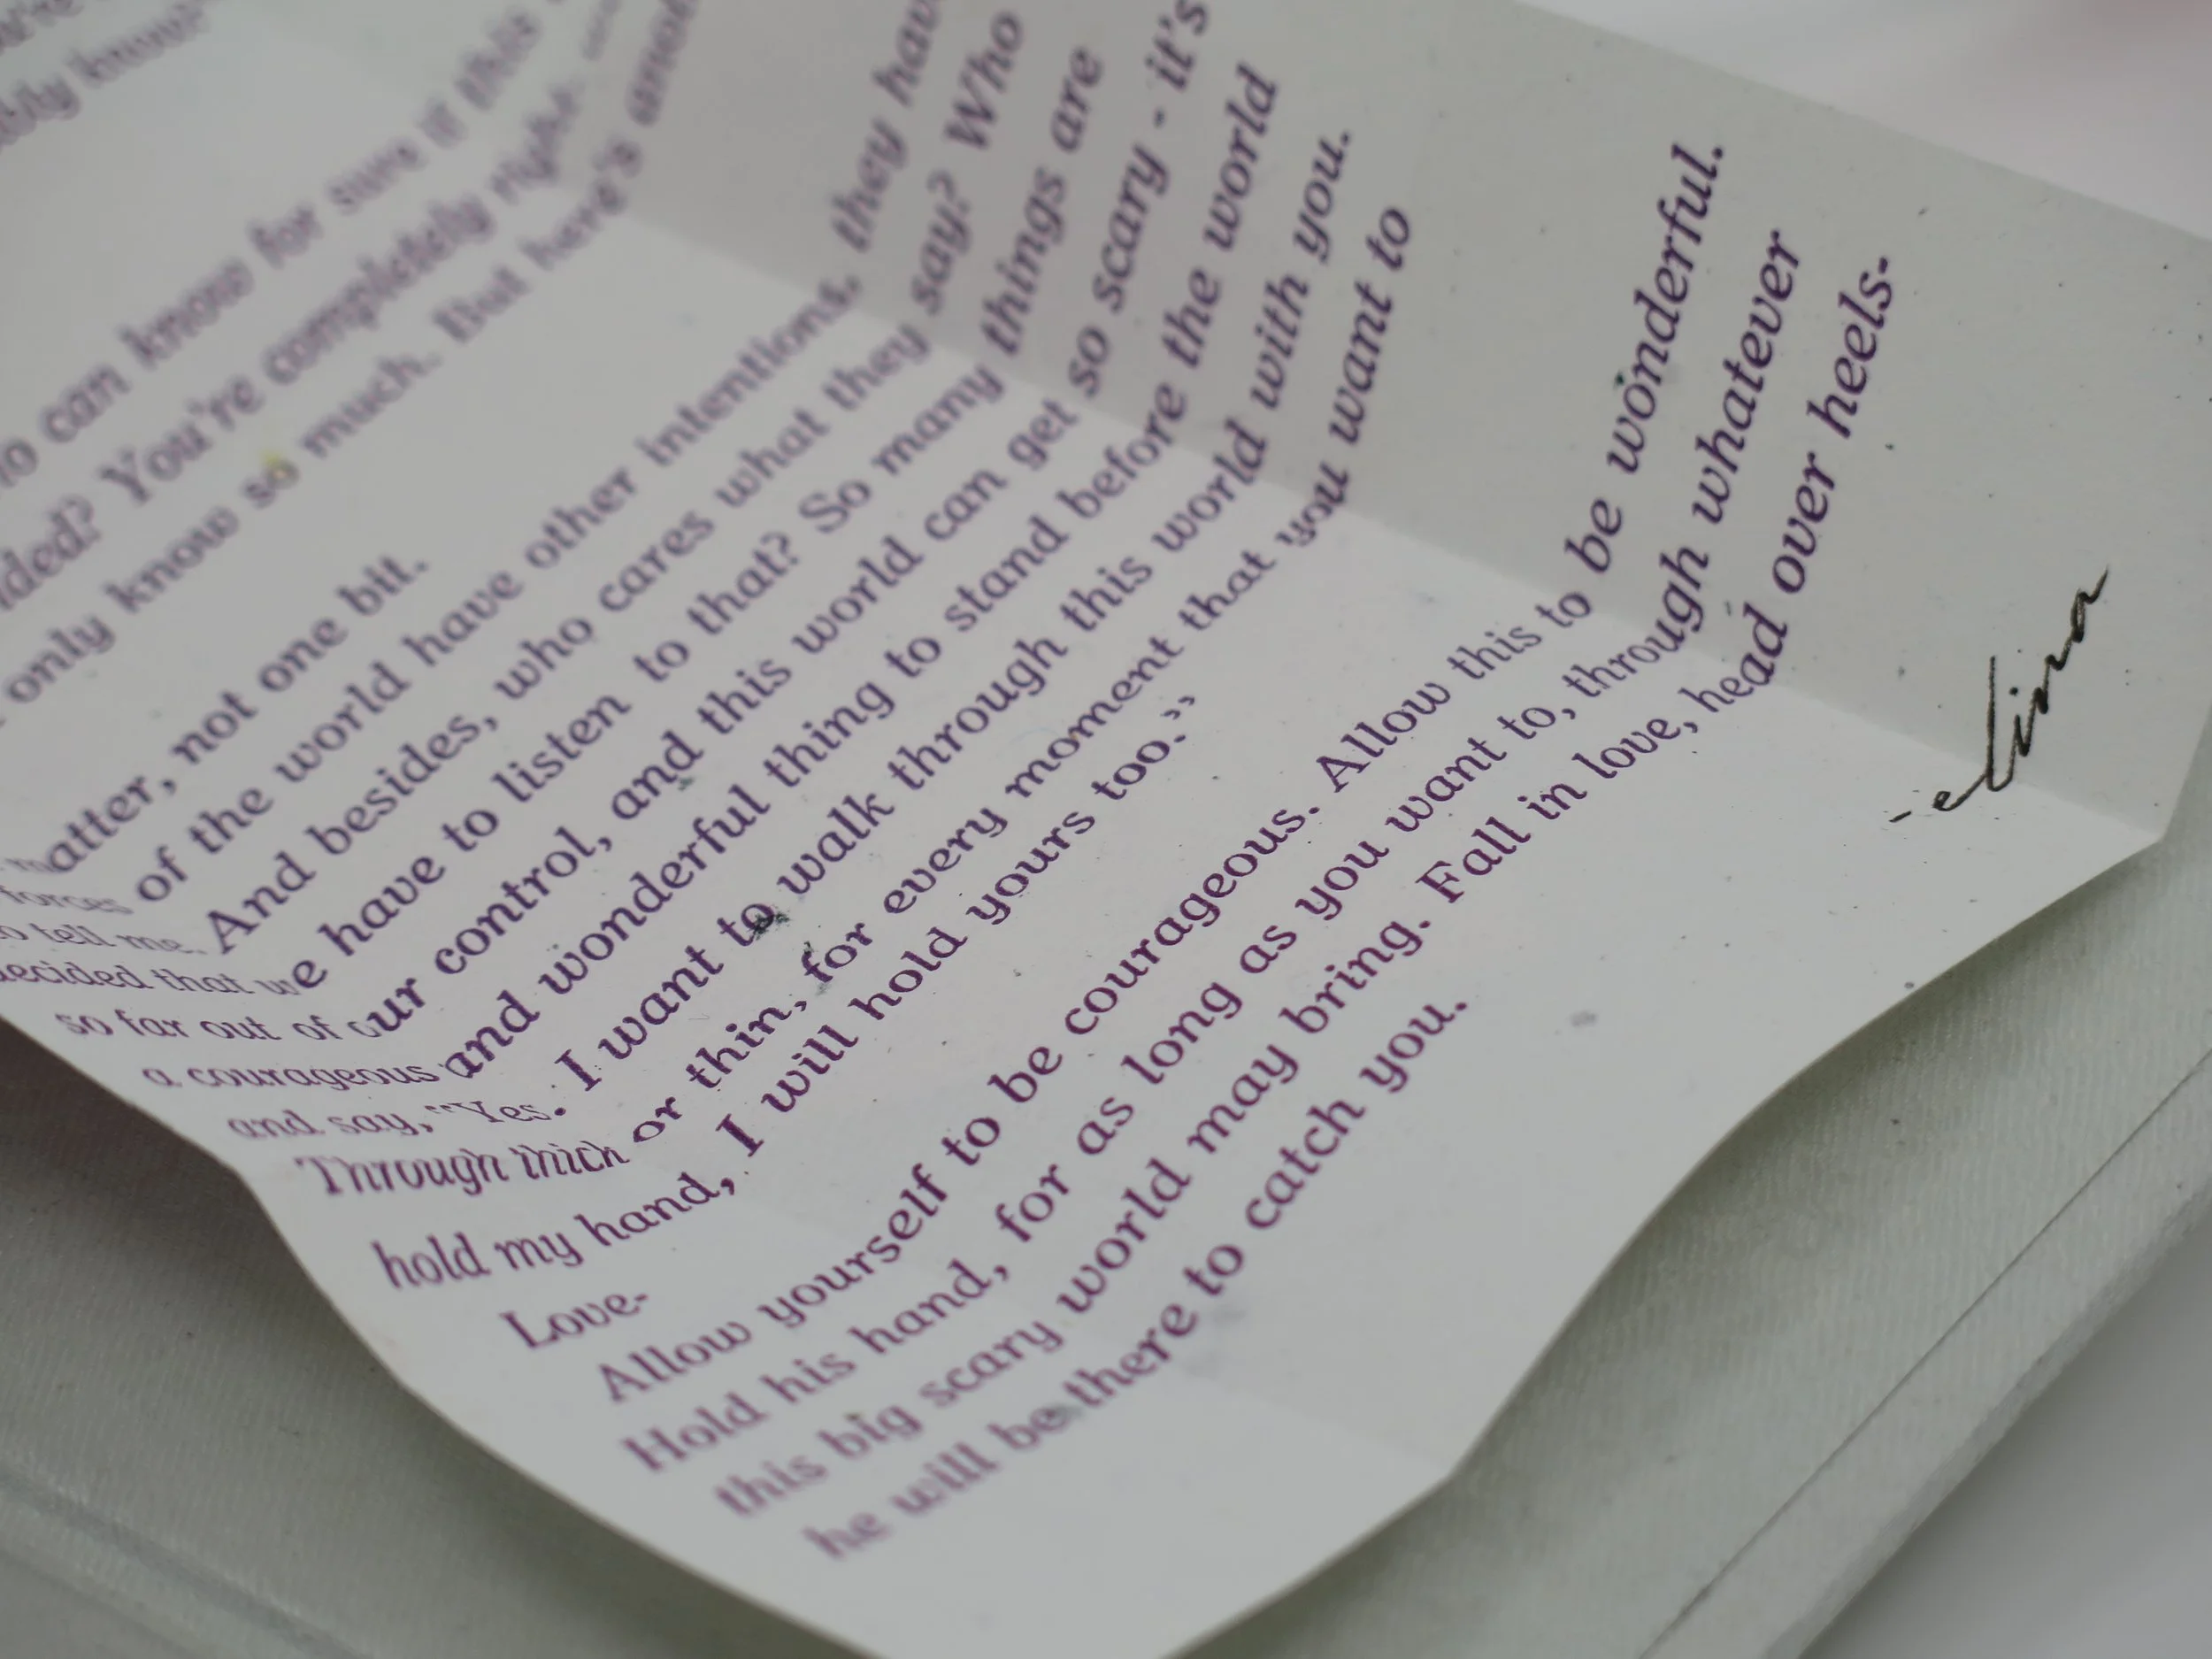 can know for sure if this
You're completely right.
only know so much. But here's
matter, not one bit.
forces of the world have other intentions, they
to tell me. And besides, who cares what they say? Who
decided that we have to listen to that? So many things are
so far out of our control, and this world can get so scary - it's
a courageous and wonderful thing to stand before the world
and say, "Yes. I want to walk through this world with you.
Through thick or thin, for every moment that you want to
hold my hand, I will hold yours too."
Love-
Allow yourself to be courageous. Allow this to be wonderful.
Hold his hand, for as long as you want to, through whatever
this big scary world may bring. Fall in love, head over heels-
he will be there to catch you.
-elina